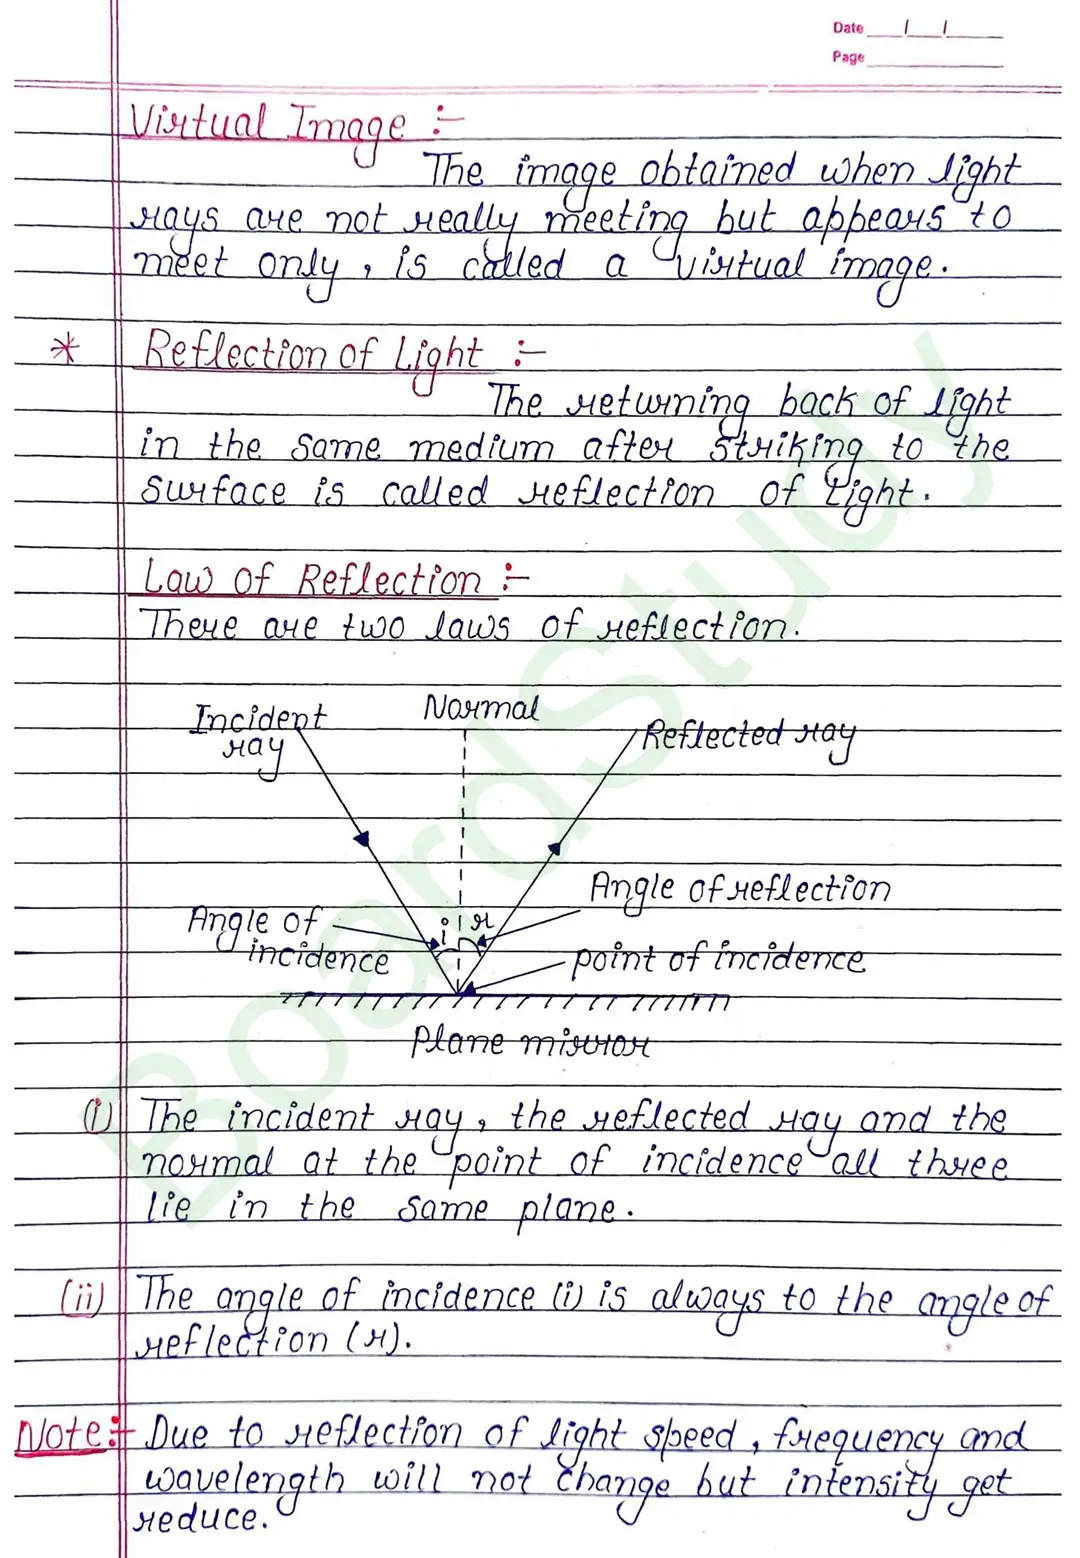 Date / /
Page
Virtual Image :-
The image obtained when light
rays are not really meeting but appears to
meet only, is called a virtual image.
* Reflection of Light :-
The returning back of light
in the same medium after striking to the
surface is called reflection of light.
Law of Reflection :-
There are two laws of reflection.
Incident
ray
Normal
Reflected ray
Angle of reflection
Angle of
incidence
i r
point of incidence
Plane mirror
(i) The incident ray, the reflected ray and the
normal at the point of incidence all three
lie in the same plane.
(ii) The angle of incidence (i) is always to the angle of
reflection (r).
Note:- Due to reflection of light speed, frequency and
wavelength will not change but intensity get
reduce.
BoardStudy